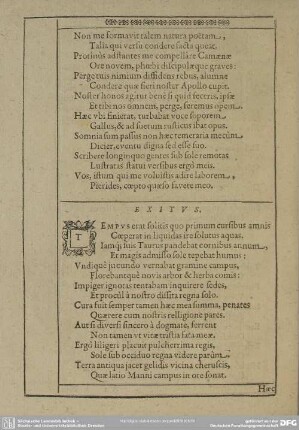 Non me formavit talem natura poëtam,
Talia qui versu condere facta queat.
Protinus adstantes me compellare Camœnæ
Ore novem, phœbi discipulæque graves:
Perge tuis nimium diffidens rebus, alumne
Condere quæ fieri noster Apollo cupit.
Noster honos agitur bene si quid feceris, ipsæ
Et tibi nos omneis, perge, feremus opem.
Hæc ubi finistat, turbabat voce soporem
Gallus, & ad suetum rusticus ibat opus.
Somnia sum passus non hæc temeraria mecum
Dicier, eventu digna sed esse suo.
Scribere longinquo gentes sub sole remotas
Lustratas statui versibus ergo meis.
Vos, istum qui me voluistis adire laborem,
Pierides, cœpto quæso favete meo.
EXITVS.
TEMPVS erat solitis quo primum cursibus amnis
Cœperat in liquidas ire solutus aquas,
Iamq; suis Taurus pandebat cornibus annum,
Et magis admisso sole tepebat humus:
Vndiquè jucundo vernabat gramine campus,
Florebantque novis arbor & herba comis:
Impiger ignotis tentabam inquirere sedes,
Et procùl à nostro dissita regna solo.
Cura fuit semper tamen hæc mea summa, penates
Quærere cum nostris relligione pares.
Aut si diversi sincero à dogmate, ferrent
Non tamen ut vitæ tristia fata meæ.
Ergò liligeri placuit pulcherrima regis,
Sole sub occiduo regna videre parùm.
Terra antiqua jacet gelidis vicina cheruscis,
Quæ latio Manni campus in ore sonat.
Hæc